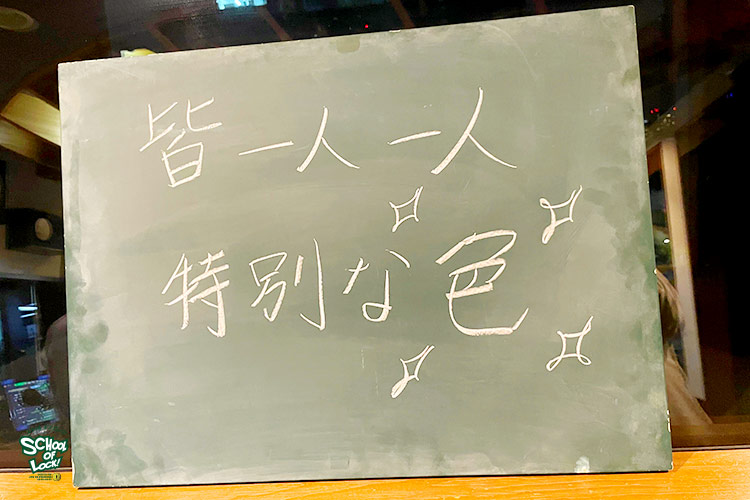 皆一人一人
特別な色
SCHOOL
OF
LOCK!